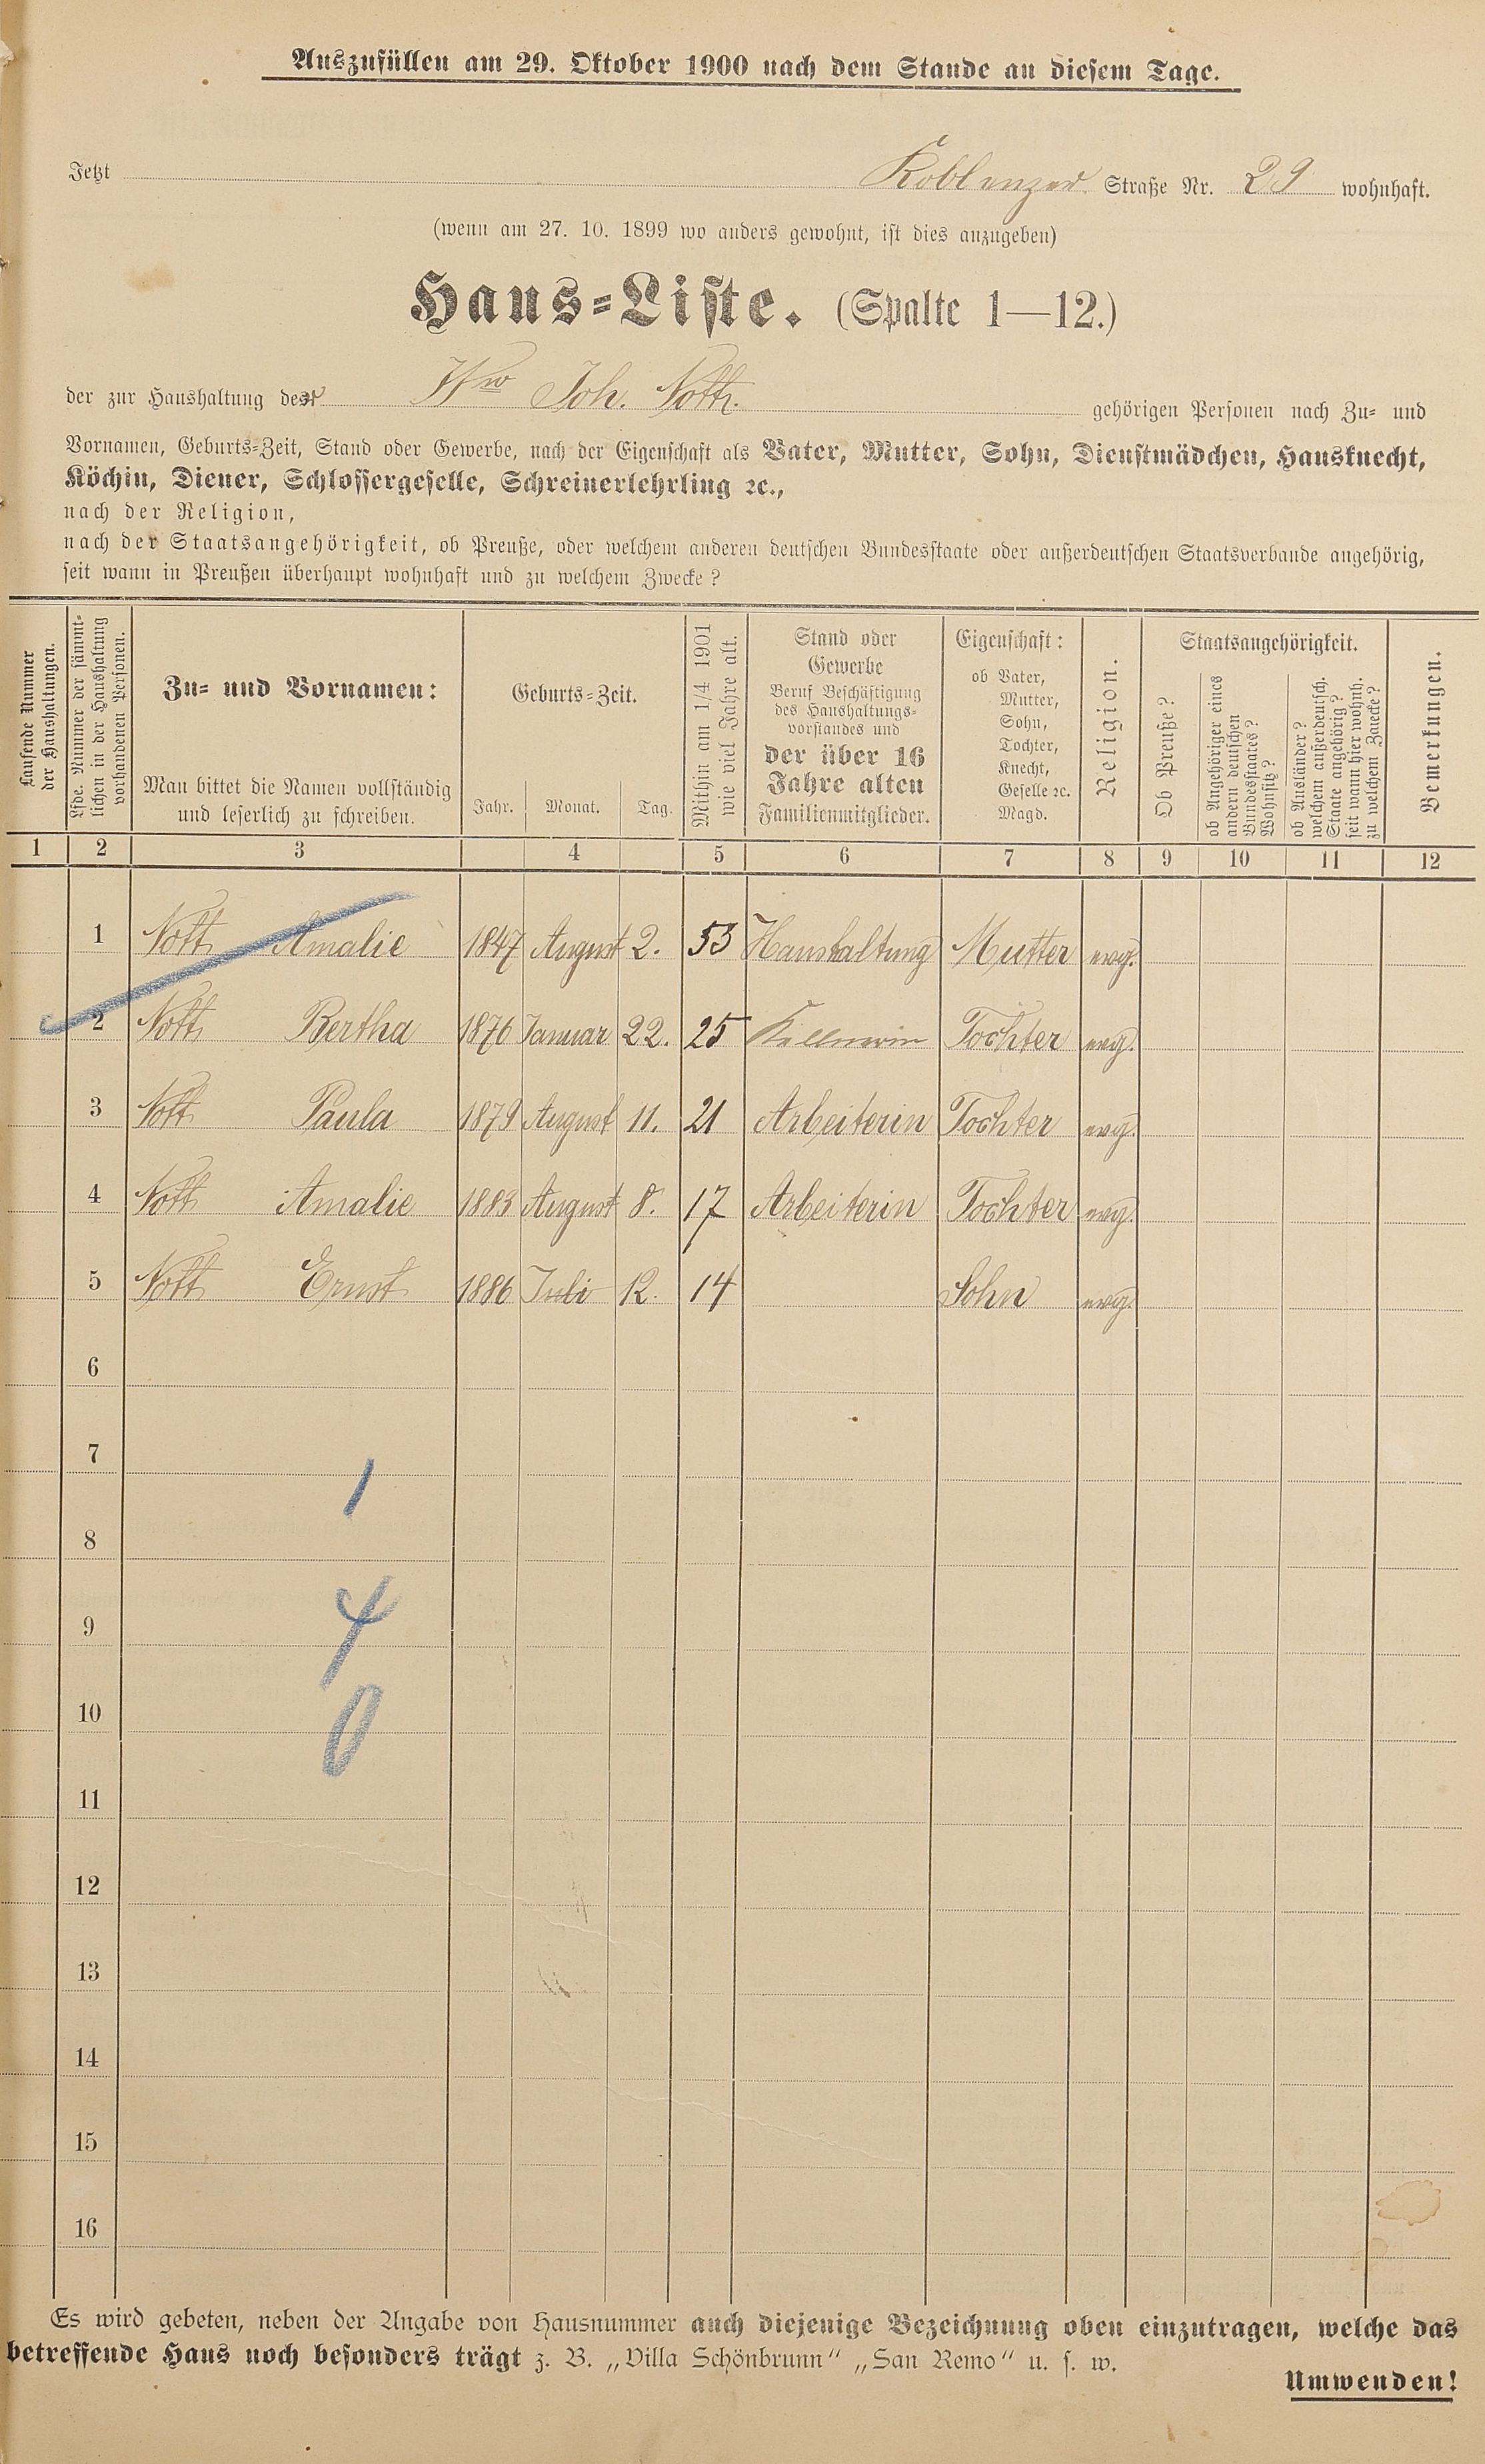 Auszufüllen am 29. Oktober 1900 nach dem Stande an diesem Tage.
Jetzt Koblenzer Straße Nr. 29 wohnhaft.
(wenn am 27. 10. 1899 wo anders gewohnt, ist dies anzugeben)
Haus-Liste. (Spalte 1—12.)
der zur Haushaltung der Ww Joh. Noth. gehörigen Personen nach Zu- und
Vornamen, Geburts-Zeit, Stand oder Gewerbe, nach der Eigenschaft als Vater, Mutter, Sohn, Dienstmädchen, Hausknecht,
Köchin, Diener, Schlossergeselle, Schreinerlehrling ꝛc.,
nach der Religion,
nach der Staatsangehörigkeit, ob Preuße, oder welchem anderen deutschen Bundesstaate oder außerdeutschen Staatsverbande angehörig,
seit wann in Preußen überhaupt wohnhaft und zu welchem Zwecke?
Laufende Nummer
der Haushaltungen.
Lfde. Nummer der sämmt-
lichen in der Haushaltung
vorhandenen Personen.
Zu- und Vornamen:
Man bittet die Namen vollständig
und leserlich zu schreiben.
Geburts-Zeit.
Jahr. Monat. Tag.
Mithin am 1/4 1901
wie viel Jahre alt.
Stand oder
Gewerbe
Beruf Beschäftigung
des Haushaltungs-
vorstandes und
der über 16
Jahre alten
Familienmitglieder.
Eigenschaft:
ob Vater,
Mutter,
Sohn,
Tochter,
Knecht,
Geselle ꝛc.
Magd.
Religion.
Staatsangehörigkeit.
Ob Preuße?
ob Angehöriger eines
andern deutschen
Bundesstaates?
Wohnsitz?
ob Ausländer?
welchem außerdeutsch.
Staate angehörig?
seit wann hier wohnh.
zu welchem Zwecke?
Bemerkungen.
1 2 3 4 5 6 7 8 9 10 11 12
1 Noth Amalie 1847 August 2. 53 Haushaltung Mutter evg.
2 Noth Bertha 1876 Januar 22. 25 Kellnerin Tochter evg.
3 Noth Paula 1879 August 11. 21 Arbeiterin Tochter evg.
4 Noth Amalie 1883 August 8. 17 Arbeiterin Tochter evg.
5 Noth Ernst 1886 Juli 12. 14 Sohn evg.
6
7
1
8
9
4
10
0
11
12
13
14
15
16
Es wird gebeten, neben der Angabe von Hausnummer auch diejenige Bezeichnung oben einzutragen, welche das
betreffende Haus noch besonders trägt z. B. „Villa Schönbrunn“ „San Remo“ u. s. w.
Umwenden!